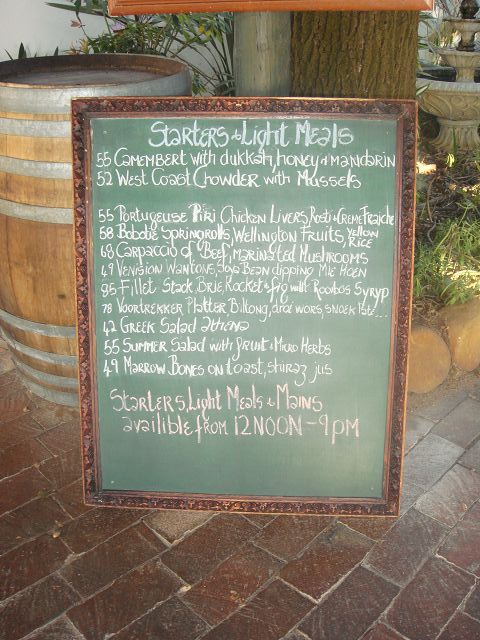 Starters & Light Meals
55 Camembert with dukkah, honey & mandarin
52 West Coast Chowder with Mussels
55 Portugeuse Piri Chicken Livers, Rosti & Creme Fraiche
58 Bobotie springrolls, Wellington Fruits, Yellow Rice
68 Carpaccio of Beef, marinated Mushrooms
49 Venision Wantons, Soya Bean dipping
85 Fillet Stack Brie, Rocket & fig with Rooibos Syryp
78 Voortrekker Platter Biltong, droë wors, snoek Pate...
42 Greek Salad athena
55 Summer Salad with fruit & Micro Herbs
49 Marrow Bones on toast, jus
Starters, Light Meals & Mains
availible from 12NOON - 9pm